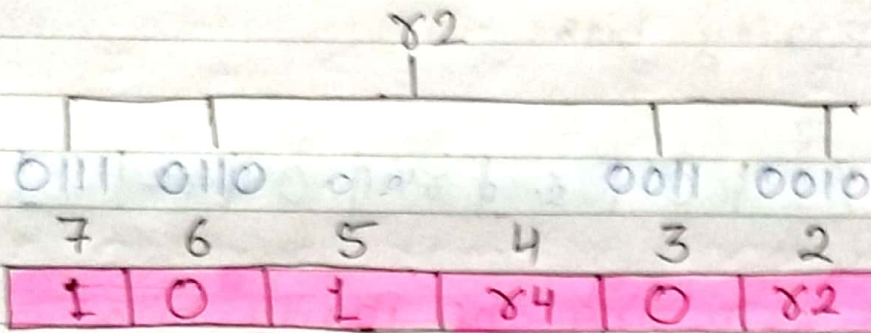 r2
0111 0110 0011 0010
7 6 5 4 3 2
1 0 1 r4 0 r2